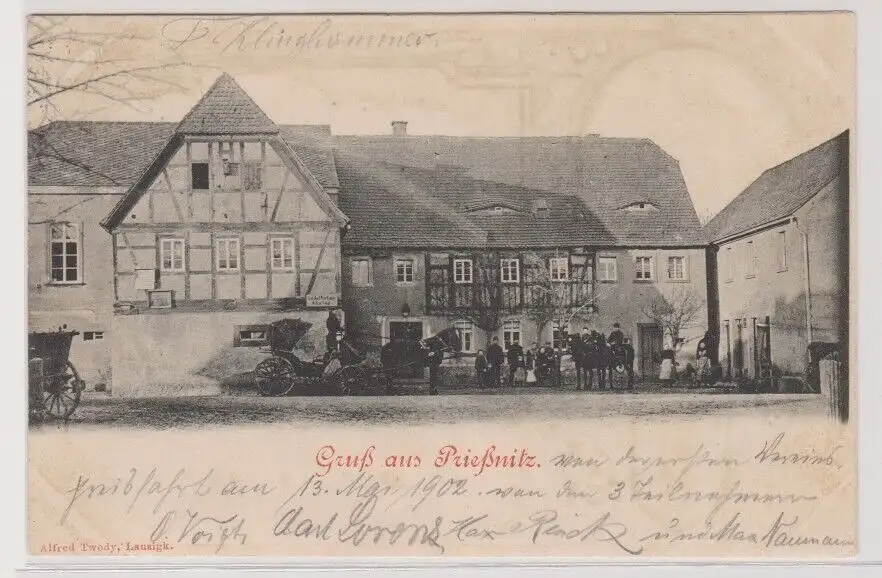 Klinghammer.
Gruß aus Prießnitz. von der ersten Vereins-
fahrt am 13. Mai 1902. von den 3 Teilnehmern
O. Voigt, Carl Lorenz Max und Max Naumann
Alfred Twody, Lausigk.